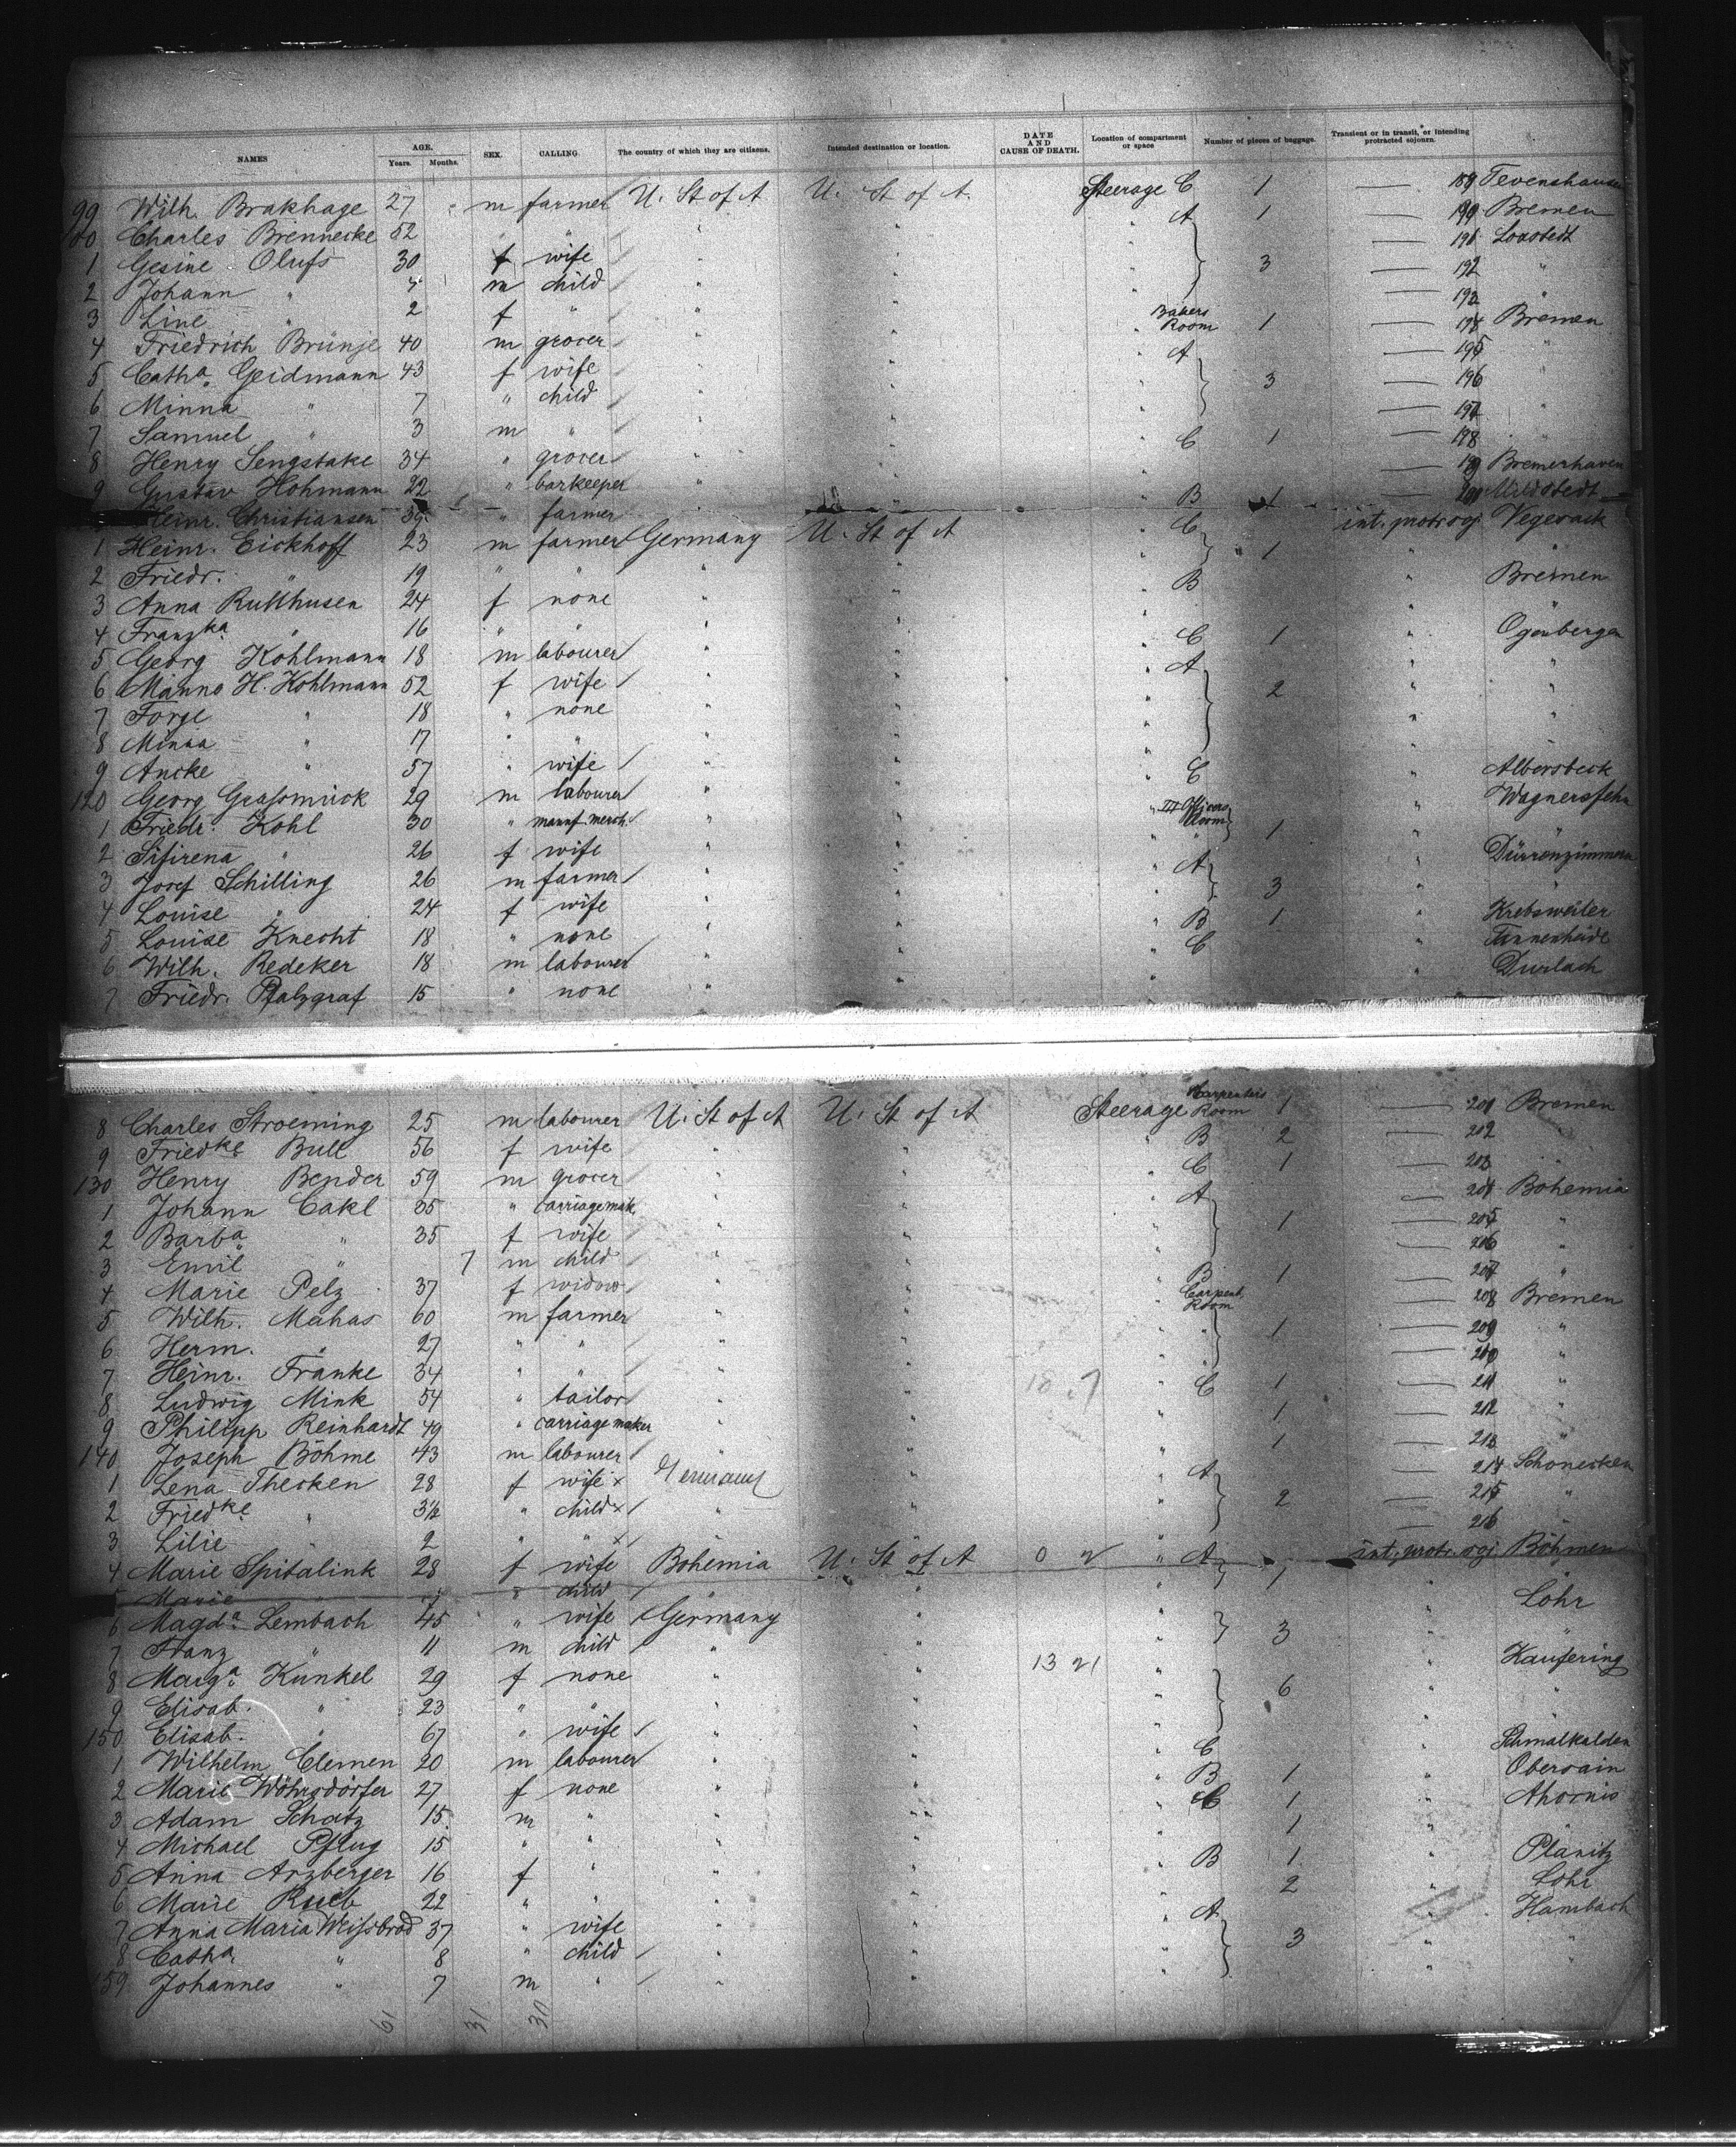 NAMES AGE. Years. Months. SEX. CALLING. The country of which they are citizens. Intended destination or location. DATE AND CAUSE OF DEATH. Location of compartment or space Number of pieces of baggage. Transient or in transit, or intending protracted sojourn.
99 Wilh. Brakhage 27 m farmer U. St of A U. St of A. Steerage C 1 — 189
100 Charles Brennecke 52 " " " " " A 1 — 190 Bremen
1 Gesine Olufs 30 f wife " " " — 191 Loxstedt
2 Johann " 4 m child " " " 3 — 192 "
3 Line " 2 f " " " " — 193 "
4 Friedrich Brünje 40 m grocer " " " Bakers Room 1 — 194 Bremen
5 Catha. Geidmann 43 f wife " " " A — 195 "
6 Minna " 7 " child " " " 3 — 196 "
7 Samuel " 3 m " " " " — 197 "
8 Henry Sengstake 34 " grocer " " " C 1 — 198 "
9 Gustav Hohmann 22 " barkeeper " " — Bremerhaven
Heinr. Christiansen " farmer " " B 1 — Mildstedt
1 Heinr. Eickhoff 23 m farmer Germany U. St of A " C int. protr. soj. Vegesack
2 Friedr. " 19 " " " " " 1 " "
3 Anna Rullhusen 24 f none " " " B " Bremen
4 Franzka " 16 " " " " " " "
5 Georg Kohlmann 18 m labourer " " " C 1 "
6 Manno H. Kohlmann 52 f wife " " " A " "
7 " 18 " none " " " 2 " "
8 Minna " 17 " " " " " " "
9 Ancke " 57 " wife " " " " "
120 Georg Grassmück 29 m labourer " " " C " Albersbeck
1 Friedr. Kohl 30 " manuf. merch. " " " III Officers Room 1 "
2 Sifirena " 26 f wife " " " "
3 Josef Schilling 26 m farmer " " " A " Dürrenzimmern
4 Louise " 24 f wife " " " 3 "
5 Louise Knecht 18 " none " " " B 1 " Krebsweiler
6 Wilh. Redeker 18 m labourer " " " C "
7 Friedr. Pfalzgraf 15 " none " " " " Durlach
8 Charles Stroeming 25 m labourer U. St of A U. St of A Steerage Carpenters Room 1 — 201 Bremen
9 Friedke Bull 56 f wife " " " B 2 — 202 "
130 Henry Bender 59 m grocer " " " C 1 — 203 "
1 Johann Cakl 35 " carriagemak. " " " A — 204 Bohemia
2 Barba. " 35 f wife " " " 1 — 205 "
3 Emil " 7 m child " " " — 206 "
4 Marie Pelz 37 f widow " " " B 1 — 207 "
5 Wilh. Mahas 60 m farmer " " " Carpent. Room — 208 Bremen
6 Herm. " 27 " " " " " 1 — 209 "
7 Heinr. Franke 34 " " " " " — 210 "
8 Ludwig Mink 54 " tailor " " " C 1 — 211 "
9 Philipp Reinhardt 49 " carriage maker " " " 1 — 212 "
140 Joseph Böhme 43 m labourer " " " 1 — 213 "
1 Lena Thecken 28 f wife x Germany " " A — 214 Schonecken
2 Friedke " 3½ " child x " " " 2 — 215 "
3 Lilie " 2 " " x " " — 216 "
4 Marie Spitalink 28 f wife Bohemia U. St of A " A int. protr. soj. Böhmen
5 Marie " " child " " " 1 "
6 Magda. Lembach 45 " wife Germany " " " Lohr
7 Franz " 11 m child " " " 3 " "
8 Marga. Künkel 29 f none " " 13 21 " " Kaufering
9 Elisab. " 23 " " " " " 6 " "
150 Elisab. " 67 " wife " " " " "
1 Wilhelm Clemen 20 m labourer " " " C " Schmalkalden
2 Marie Wöhrsdörfer 27 f none " " " B 1 "
3 Adam Schatz 15 m " " " " C 1 " Ahornis
4 Michael Pflug 15 " " " " " 1 " "
5 Anna Arzberger 16 f " " " " B 1 " Planitz
6 Marie Rueb 22 " " " " 2 " Lohr
7 Anna Maria Weissbrod 37 " wife " " " A " Hambach
8 Catha. " 8 " child " " " 3 " "
159 Johannes " 7 m " " " " " "
61 31 30